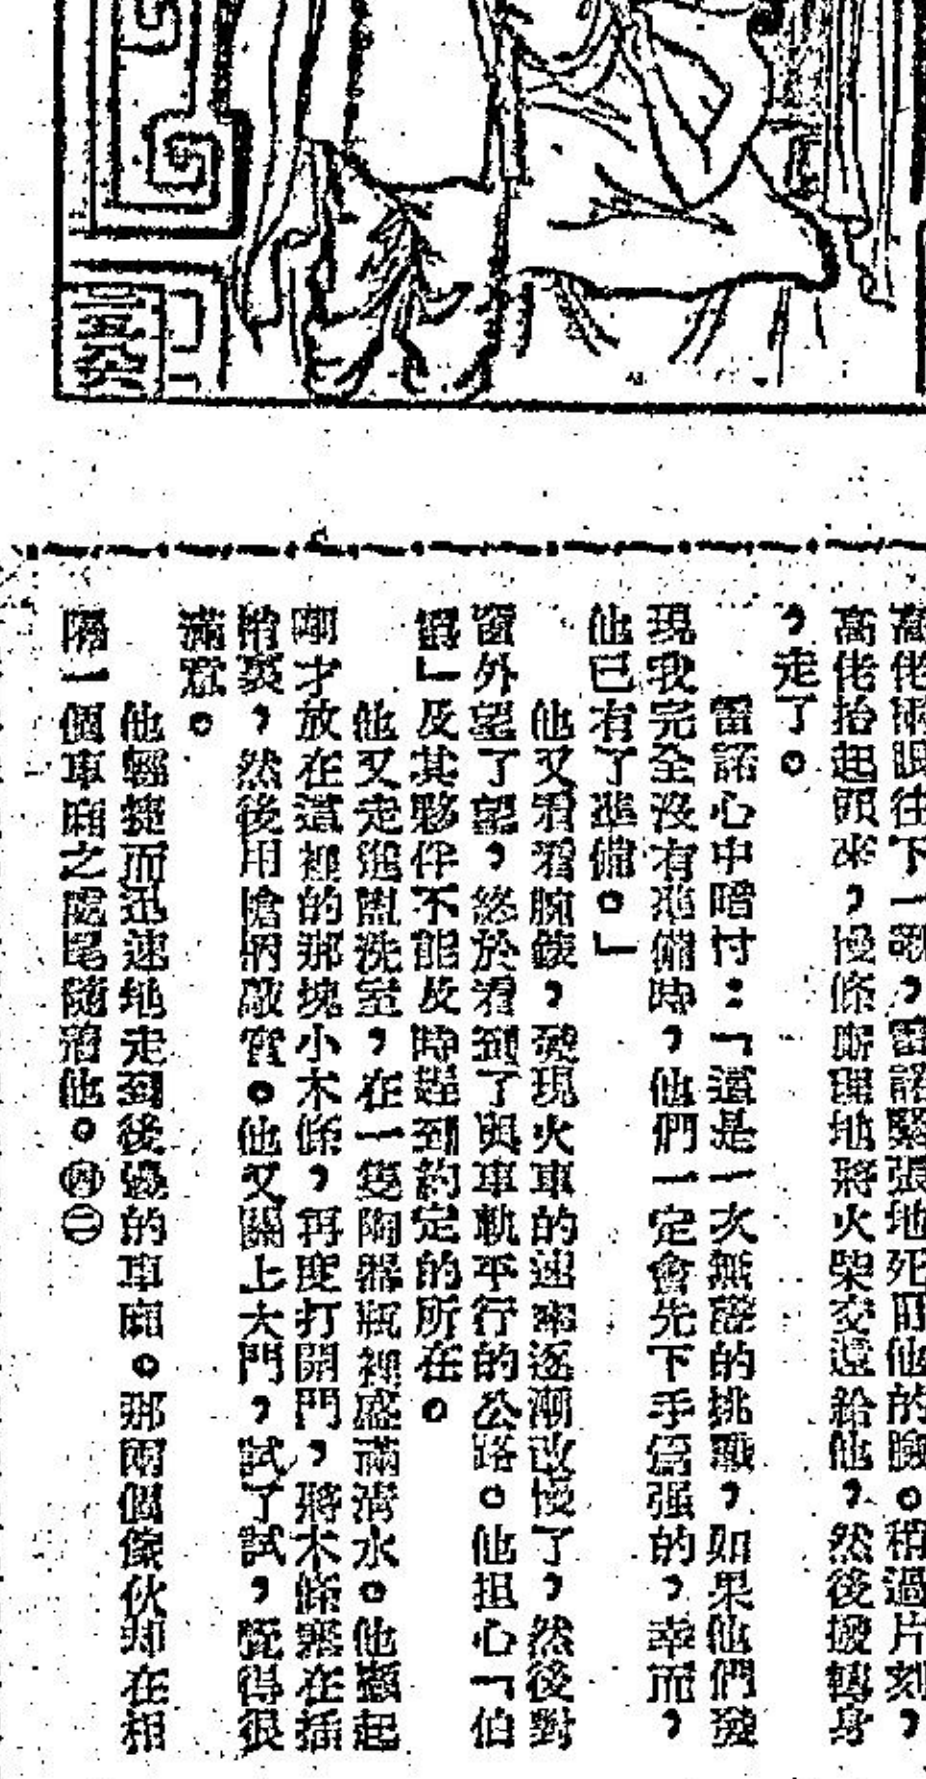 高佬兩眼往下一瞅，雷諾緊張地死盯他的臉。稍過片刻，
高佬抬起頭來，慢條斯理地將火柴交還給他，然後撥轉身
，走了。
雷諾心中暗忖：「這是一次無聲的挑戰，如果他們發
現我完全沒有準備時，他們一定會先下手爲强的，幸而，
他已有了準備。」
他又看看腕錶，發現火車的速率逐漸改慢了，然後對
窗外望了望，終於看到了與車軌平行的公路。他担心「伯
爵」及其夥伴不能及時趕到約定的所在。
他又走進盥洗室，在一隻陶器瓶裡盛滿清水。他拿起
剛才放在這裡的那塊小木條，再度打開門，將木條塞在插
裏，然後用槍柄敲實。他又關上大門，試了試，覺得很
滿意。
他輕捷而迅速地走到後邊的車廂。那兩個傢伙却在相
隔一個車廂之處尾隨着他。㊃㊁
二五八